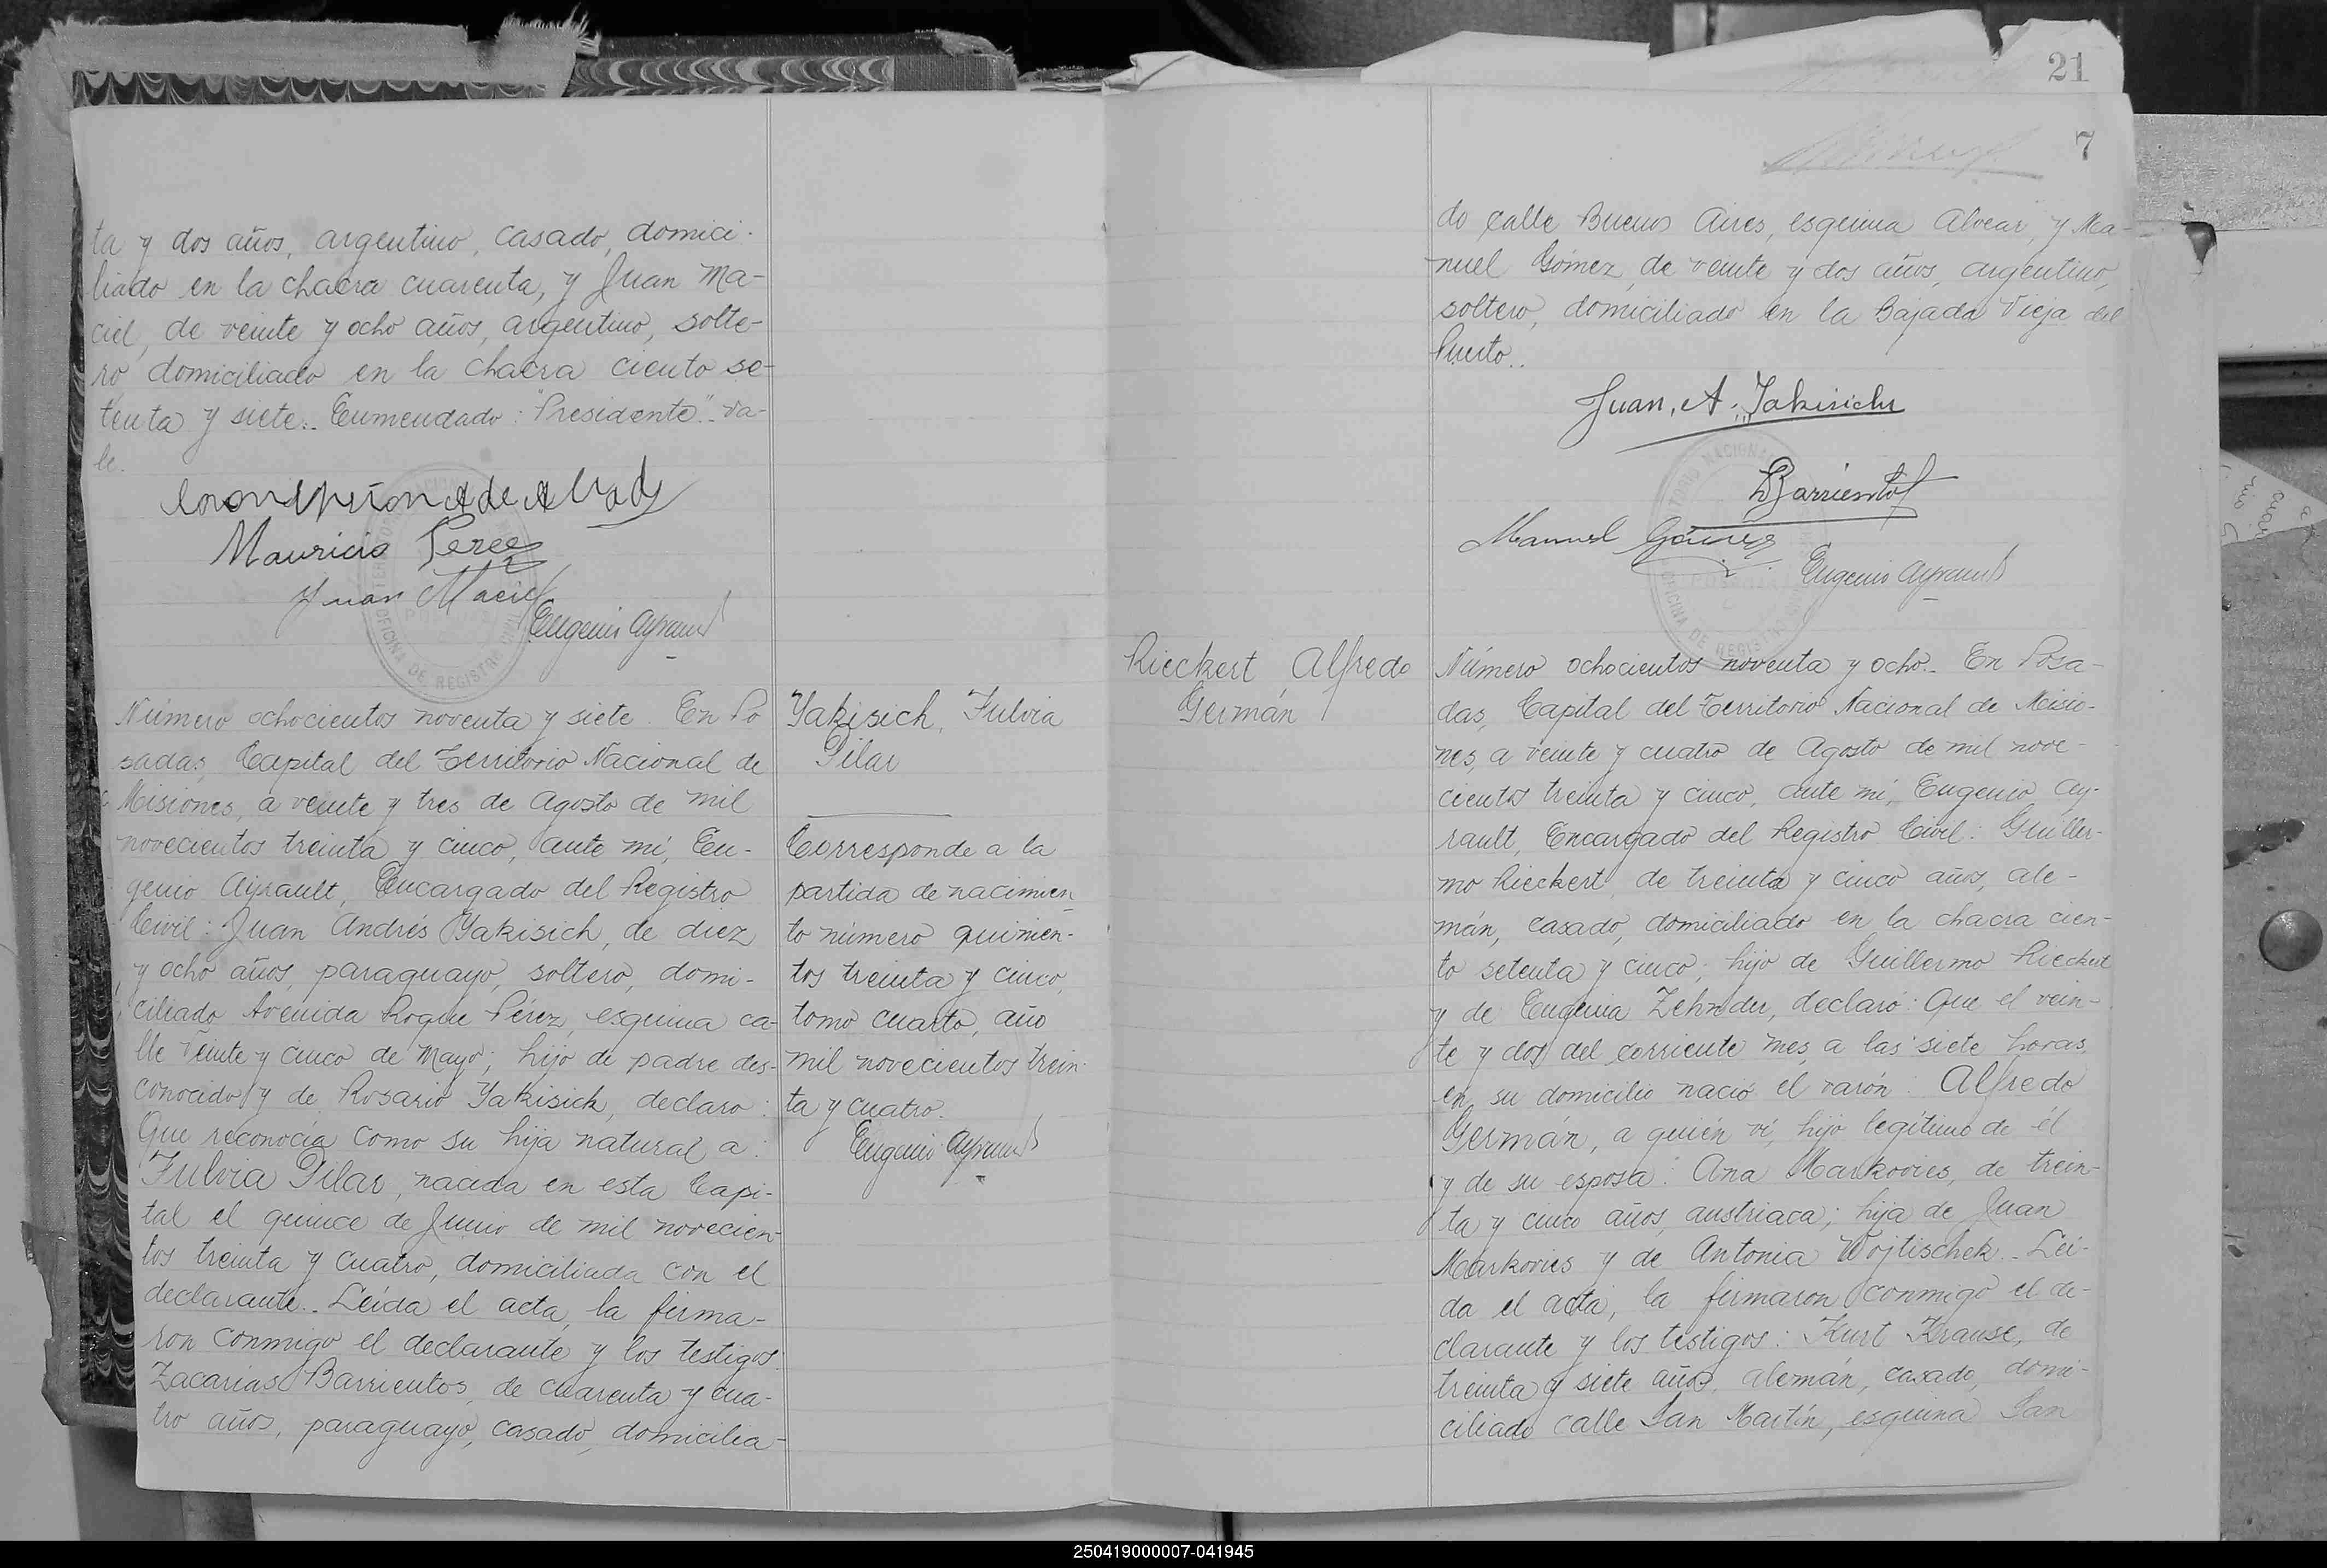 ta y dos años, argentino, casado, domici-
liado en la chacra cuarenta, y Juan Ma-
ciel, de veinte y ocho años, argentino, solte-
ro domiciliado en la chacra ciento se-
tenta y siete.. Enmendado: "Presidente".. va-
le.
Mauricio Perez
Juan Maciel
Eugenio Ayrault
Número ochocientos noventa y siete. En Po
sadas, Capital del Territorio Nacional de
Misiones, a veinte y tres de Agosto de mil
novecientos treinta y cinco, ante mí, Eu-
genio Ayrault, Encargado del Registro
Civil: Juan Andrés Yakisich, de diez
y ocho años, paraguayo, soltero, domi-
ciliado Avenida Roque Pérez, esquina ca-
lle Veinte y cinco de Mayo; hijo de padre des-
conocido y de Rosario Yakisick, declaro:
Que reconocía como su hija natural a:
Fulvia Pilar, nacida en esta Capi-
tal el quince de Junio de mil novecien-
tos treinta y cuatro, domiciliada con el
declarante.. Leída el acta, la firma-
ron conmigo el declarante y los testigos:
Zacarías Barrientos, de cuarenta y cua-
tro años, paraguayo, casado, domicilia-
Yakisich, Fulvia
Pilar
Corresponde a la
partida de nacimien
to número quinien-
tos treinta y cinco,
tomo cuarto, año
mil novecientos trein-
ta y cuatro.
Eugenio Ayrault
21
7
do calle Buenos Aires, esquina Alvear, y Ma-
nuel Gómez, de veinte y dos años, argentino,
soltero, domiciliado en la Bajada Vieja del
Puerto..
Juan, A. Yakisich
Barrientos
Manuel Gómez
Eugenio Ayrault
Rieckert Alfredo
Germán
Número ochocientos noventa y ocho.. En Posa-
das, Capital del Territorio Nacional de Misio-
nes, a veinte y cuatro de Agosto de mil nove-
cientos treinta y cinco, ante mí, Eugenio Ay-
rault, Encargado del Registro Civil: Guiller-
mo Rieckert, de treinta y cinco años, ale-
mán, casado, domiciliado en la chacra cien-
to setenta y cinco; hijo de Guillermo Rieckert
y de Eugenia Zehnder, declaró: Que el vein-
te y dos del corriente mes, a las siete horas,
en su domicilio nació el varón: Alfredo
Germán, a quién ví, hijo legítimo de él
y de su esposa: Ana Markovies, de trein-
ta y cinco años, austriaca; hija de Juan
Markovies y de Antonia Wojtischek.. Leí-
da el acta, la firmaron conmigo el de-
clarante y los testigos: Kurt Krause, de
treinta y siete años, alemán, casado, domi-
ciliado calle San Martín, esquina San
250419000007-041945